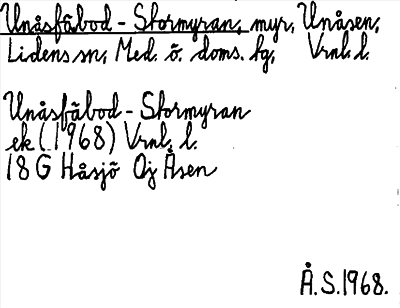 Unåsfäbod - Stormyran, myr, Unåsen,
Lidens sn, Med. ö. doms. hg, Vrnl. l.
Unåsfäbod - Stormyran
ek (1968) Vrnl. l.
18 G Håsjö Oj Åsen
Å.S.1968.